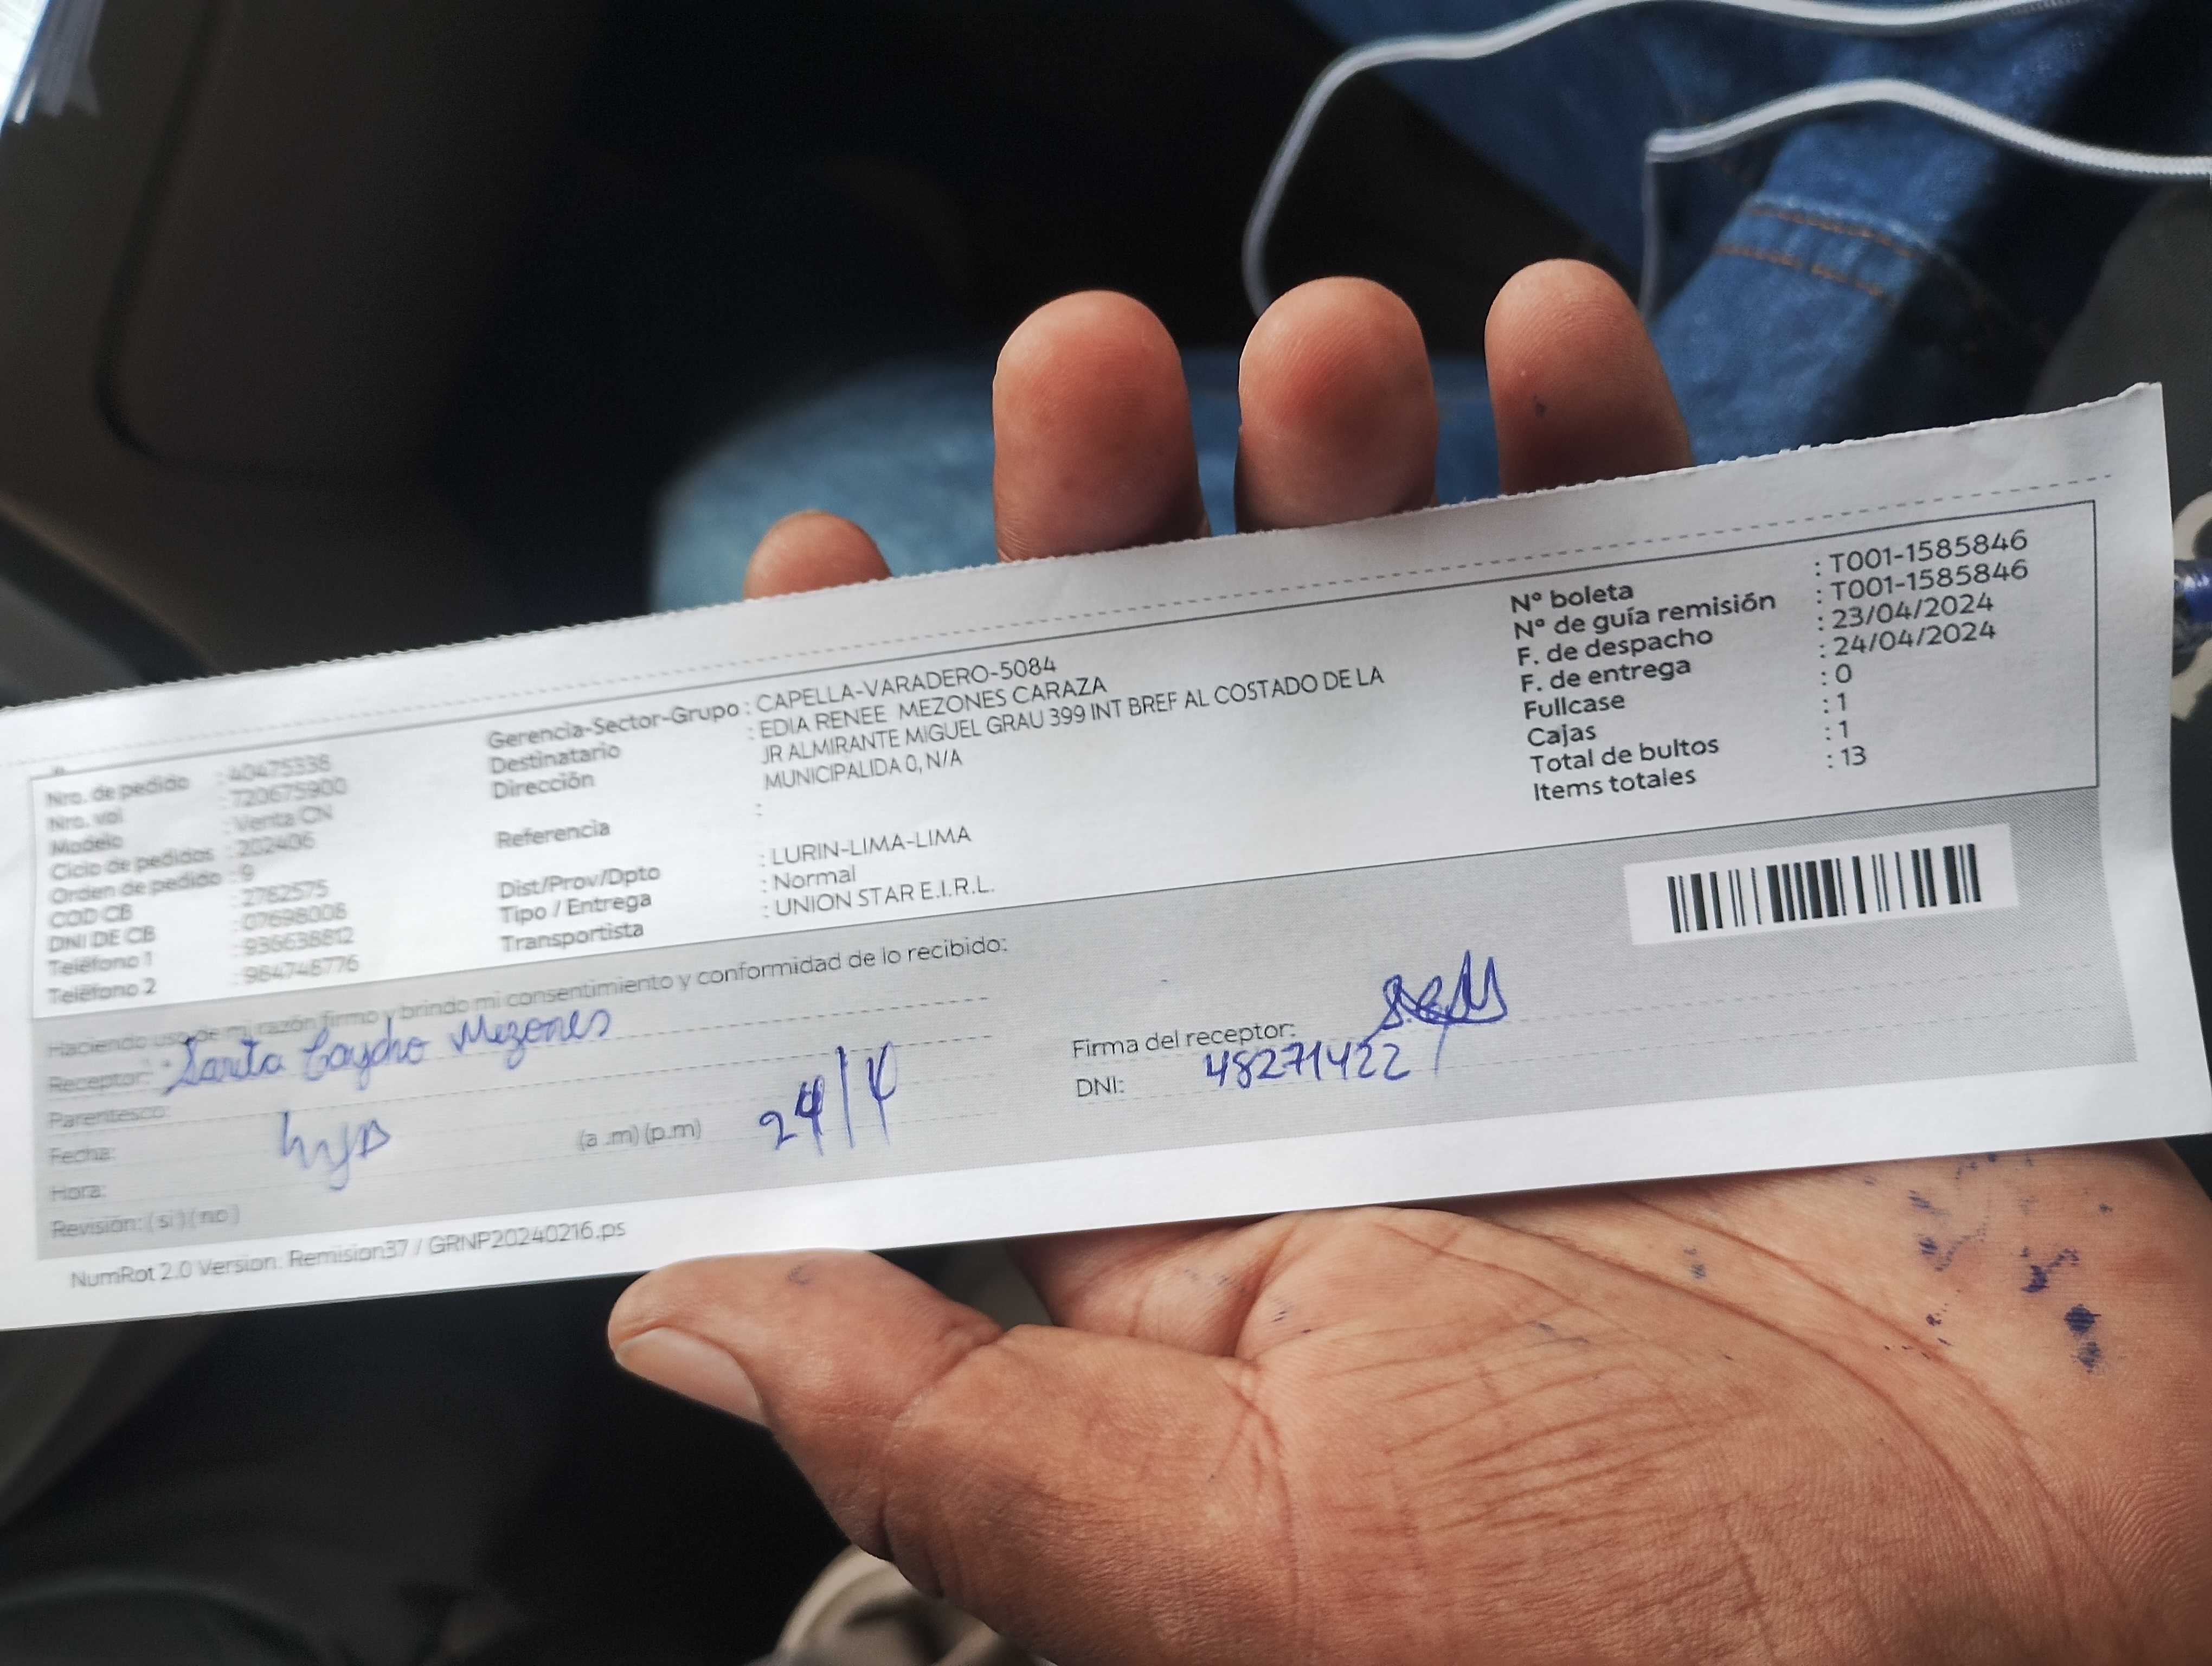 Nro. de pedido : 40475338
Nro. vol : 720675900
Modelo : Venta CN
Ciclo de pedidos : 202406
Orden de pedido : 9
COD CB : 2782575
DNI DE CB : 07698008
Teléfono 1 : 936638812
Teléfono 2 : 984748776
Gerencia-Sector-Grupo : CAPELLA-VARADERO-5084
Destinatario : EDIA RENEE MEZONES CARAZA
Dirección JR ALMIRANTE MIGUEL GRAU 399 INT BREF AL COSTADO DE LA
MUNICIPALIDA 0, N/A
Referencia :
Dist/Prov/Dpto : LURIN-LIMA-LIMA
Tipo / Entrega : Normal
Transportista : UNION STAR E.I.R.L.
Nº boleta : T001-1585846
Nº de guía remisión : T001-1585846
F. de despacho : 23/04/2024
F. de entrega : 24/04/2024
Fullcase : 0
Cajas : 1
Total de bultos : 1
Items totales : 13
Haciendo uso de mi razón firmo y brindo mi consentimiento y conformidad de lo recibido:
Receptor: Sarita Caycho Mezones
Parentesco: hija
Fecha: 24/4
Hora: (a .m) (p.m)
Revisión: ( si ) ( no )
Firma del receptor:
DNI: 48271422
NumRot 2.0 Version: Remision37 / GRNP20240216.ps